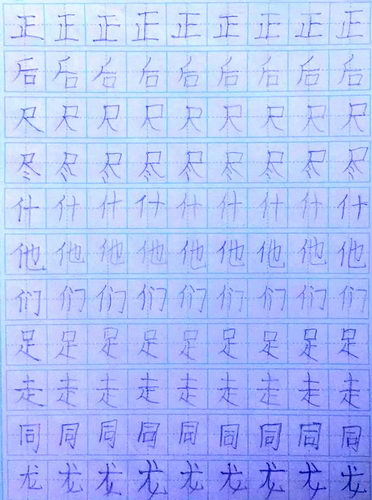 正 正 正 正 正 正 正 正 正
后 后 后 后 后 后 后 后 后
尺 尺 尺 尺 尺 尺 尺 尺 尺
尽 尽 尽 尽 尽 尽 尽 尽 尽
什 什 什 什 什 什 什 什 什
他 他 他 他 他 他 他 他 他
们 们 们 们 们 们 们 们 们
足 足 足 足 足 足 足 足 足
走 走 走 走 走 走 走 走 走
同 同 同 同 同 同 同 同 同
龙 龙 龙 龙 龙 龙 龙 龙 龙